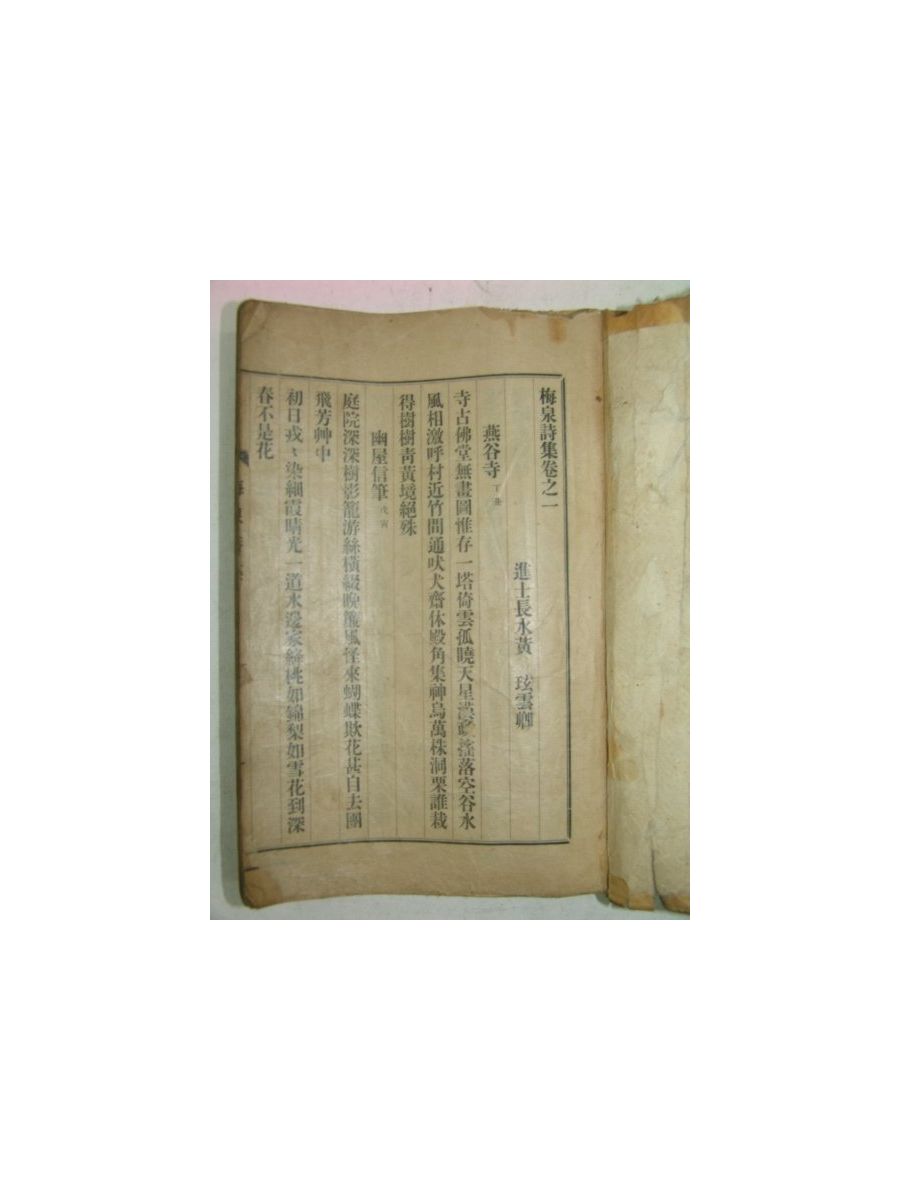 梅泉詩集卷之一
進士長水黃玹雲卿
燕谷寺 丁丑
寺古佛堂無畫圖惟存一塔倚雲孤曉天星漢落空谷水
風相激呼村近竹間通吠犬齋休殿角集神烏萬株洞栗誰栽
得樹樹靑黃境絕殊
幽屋信筆 戊寅
庭院深深樹影籠游絲橫綴晩簾風怪來蝴蝶欺花甚自去團
飛芳艸中
初日戎戎染細霞晴光一道水邊家緋桃如錦梨如雪花到深
春不是花
梅泉